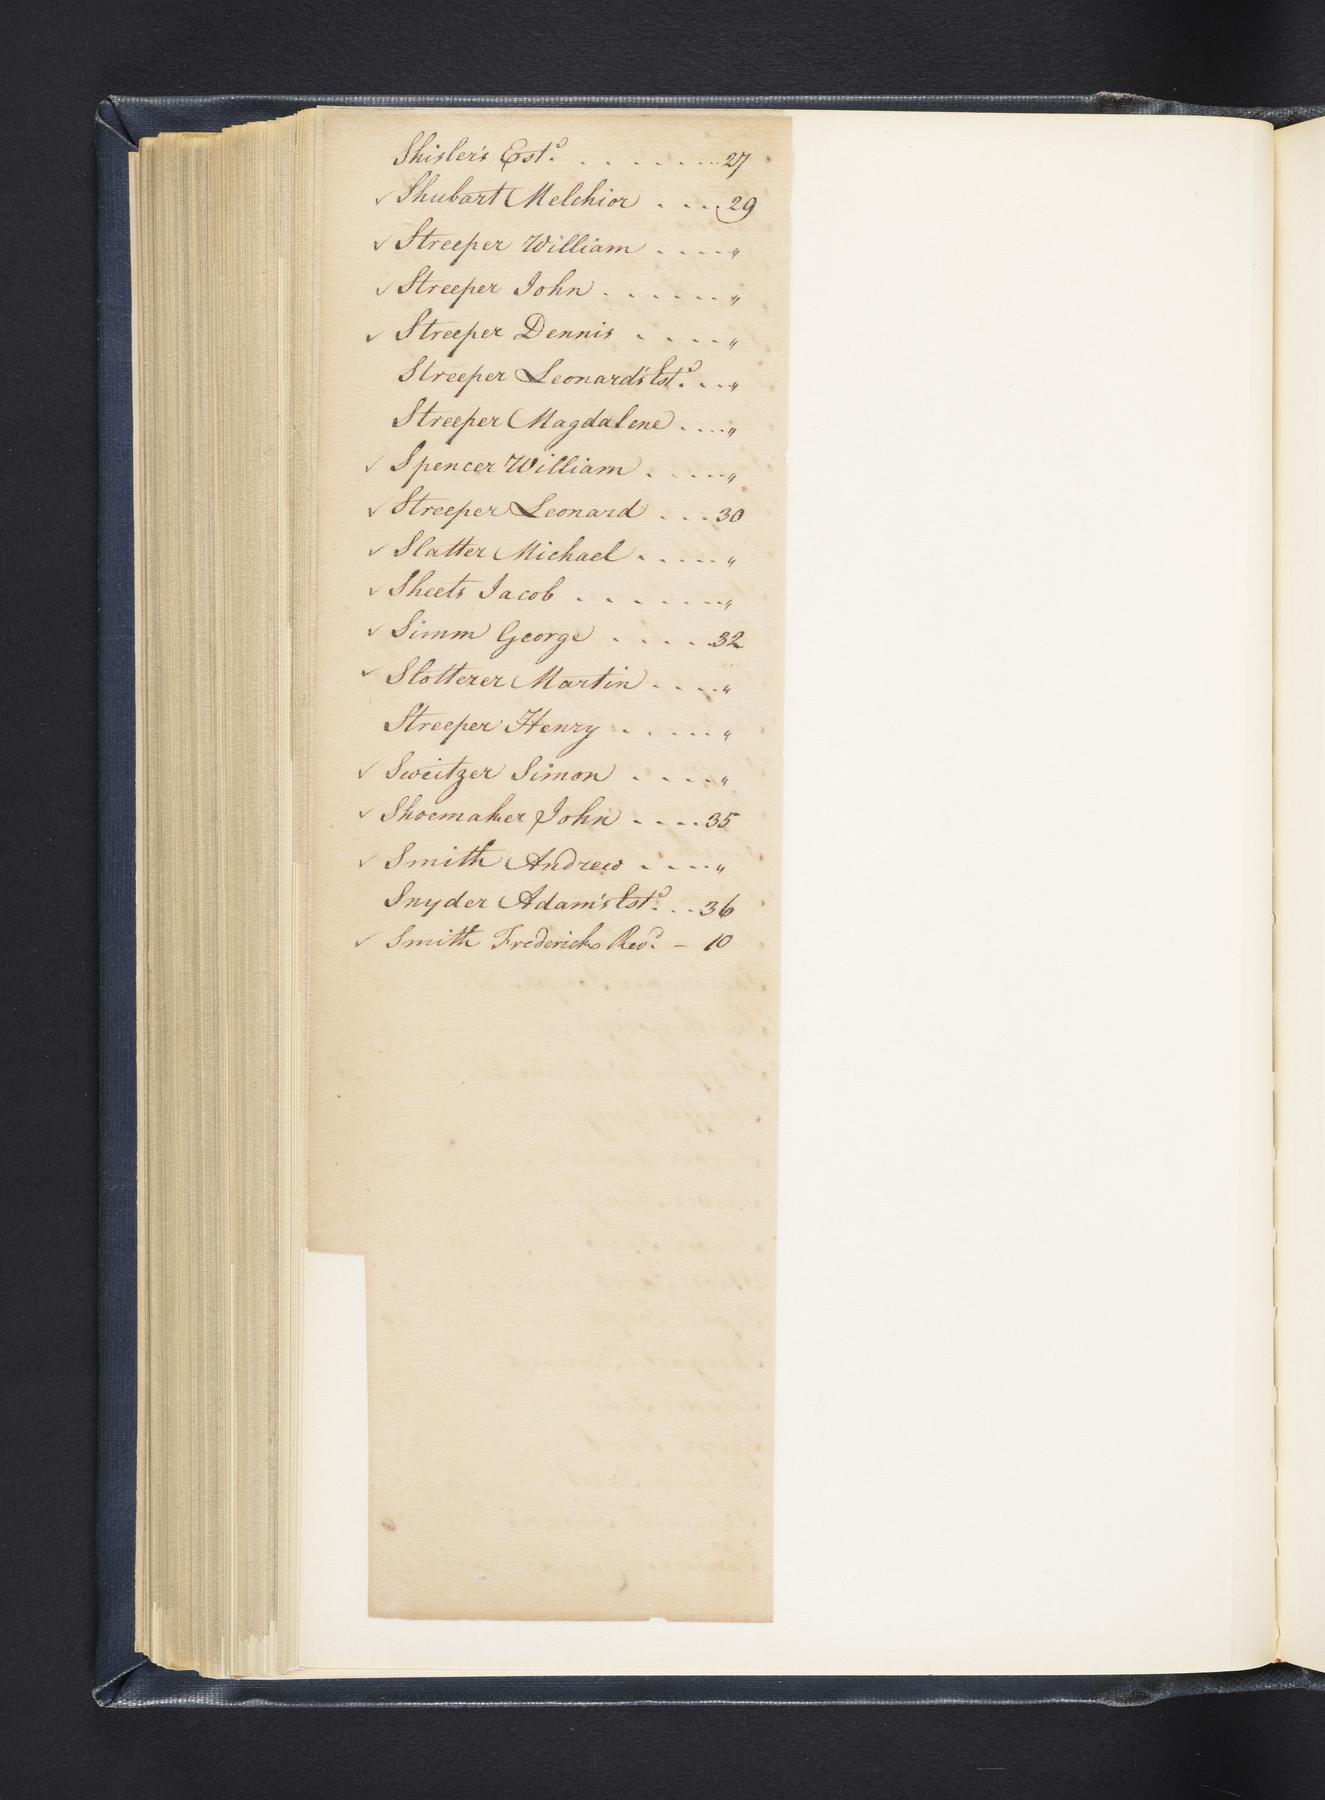 Shisler's Est.ͤ . . . . . . . 27
✓ Shubart Melchior . . . . 29
✓ Streeper William . . . . "
✓ Streeper John . . . . . . "
✓ Streeper Dennis . . . . . "
Streeper Leonard's Est.ͤ . . . "
Streeper Magdalene . . . . "
✓ Spencer William . . . . . "
✓ Streeper Leonard . . . 30
✓ Slatter Michael . . . . . "
✓ Sheets Jacob . . . . . . . "
✓ Simm George . . . . . 32
✓ Slotterer Martin . . . . "
Streeper Henry . . . . . "
✓ Sweitzer Simon . . . . "
✓ Shoemaker John . . . . 35
✓ Smith Andrew . . . . "
Snyder Adam's Est.ͤ . . . 36
✓ Smith Frederick Rev.ᵈ – 10